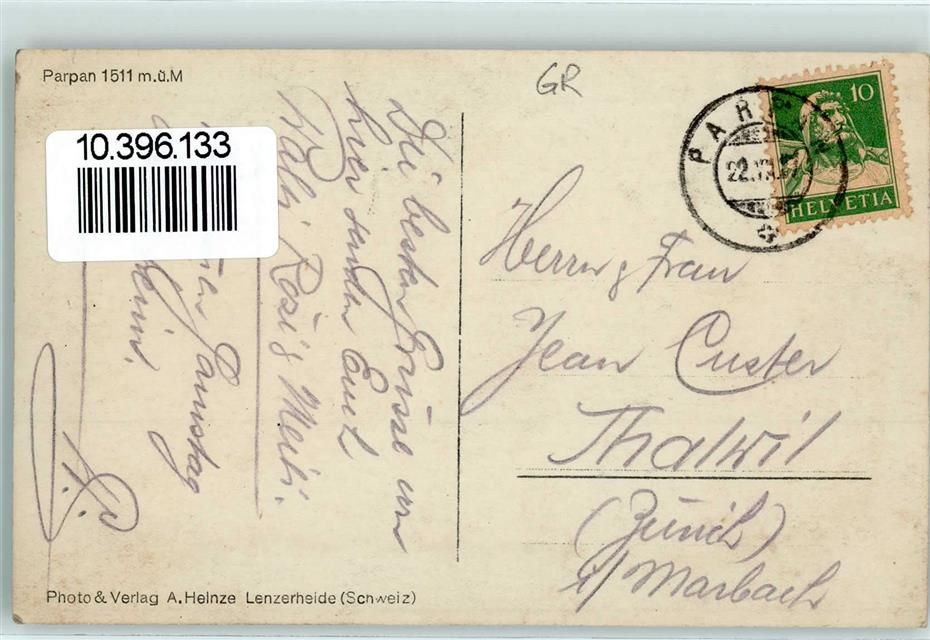 Parpan 1511 m.ü.M
GR
10.396.133
PARPAN
22.VII.
10
HELVETIA
Die besten Grüsse von
hier senden Euch
Rösi & Meili.
Samstag
heim.
Herrn & Frau
Jean Custer
Thalwil
(Zürich)
i/ Marbach
Photo & Verlag A. Heinze Lenzerheide (Schweiz)